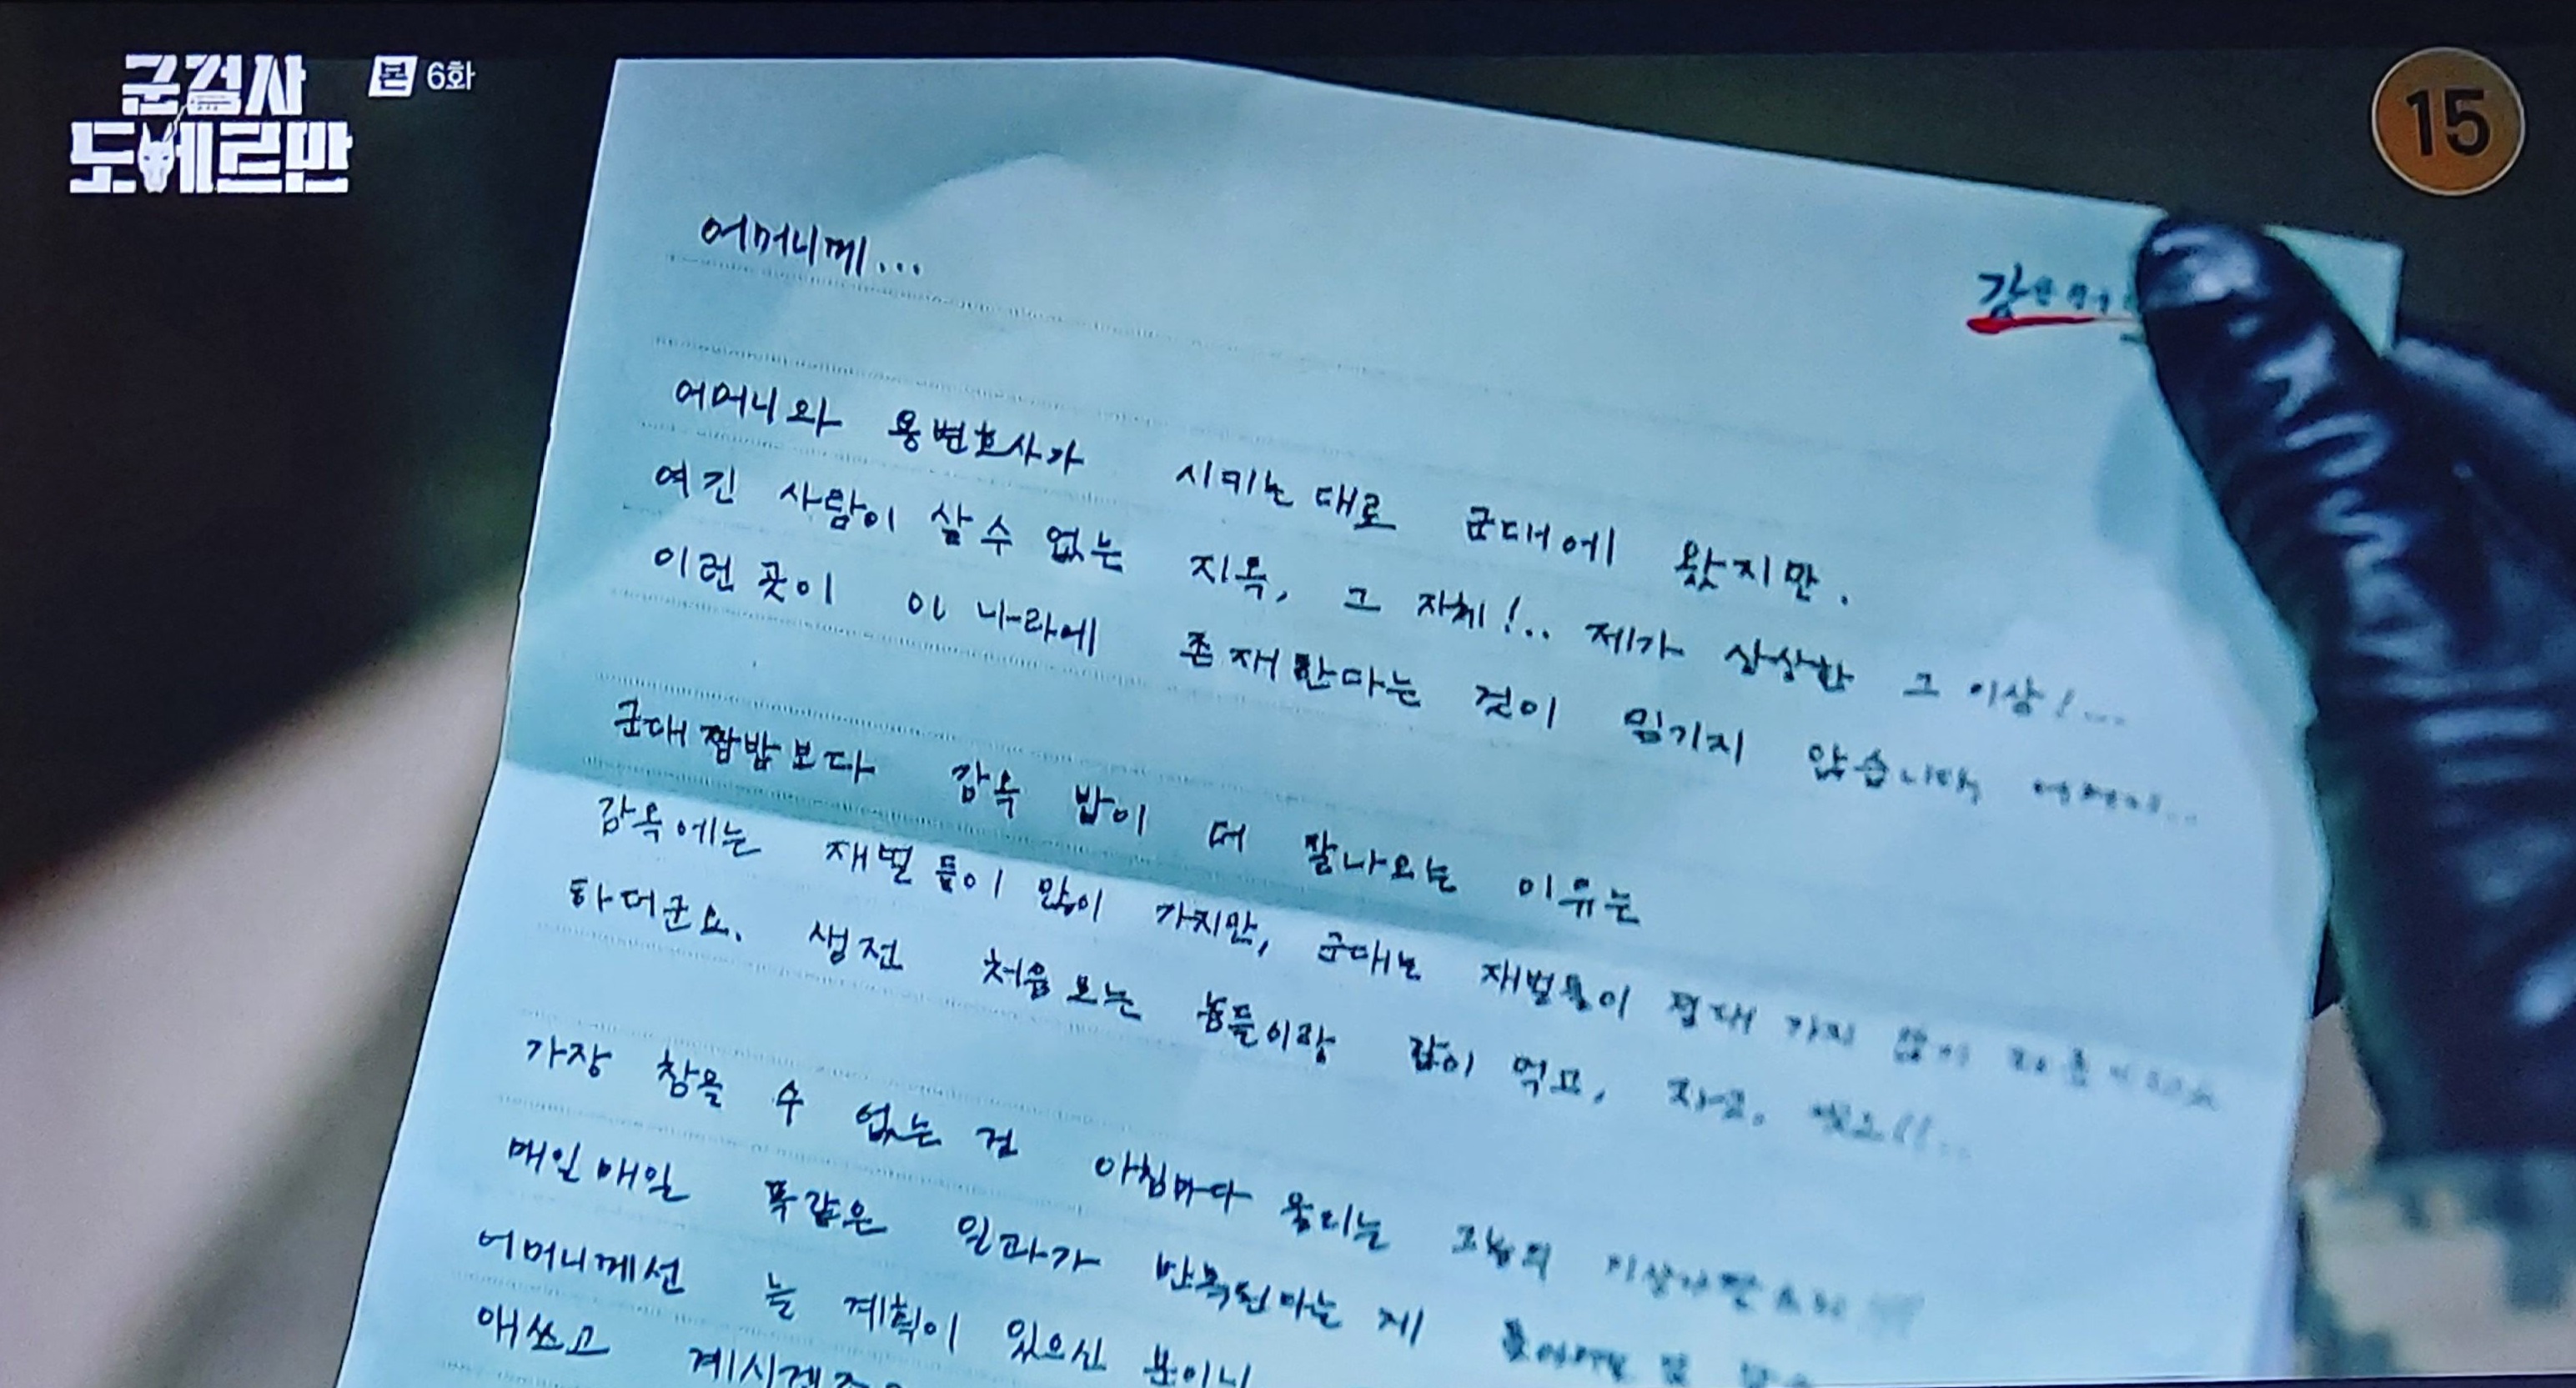 군검사
도베르만
본 6화
15
어머니께...
어머니와 용변호사가 시키는대로 군대에 왔지만.
여긴 사람이 살수 없는 지옥, 그 자체!.. 제가 상상한 그 이상!...
이런 곳이 이 나라에 존재한다는 것이 믿기지 않습니다, 어머니...
군대짬밥보다 감옥 밥이 더 잘나오는 이유는
감옥에는 재벌들이 많이 가지만, 군대는 재벌들이 절대 가지 않기
하더군요. 생전 처음보는 놈들이랑 같이 먹고, 자고, 씻고!!...
가장 참을 수 없는 건 아침마다 울리는 그놈의 기상나팔소리
매일매일 똑같은 일과가 반복된다는 게
어머니께선 늘 계획이 있으신 분이니
애쓰고 계시겠죠